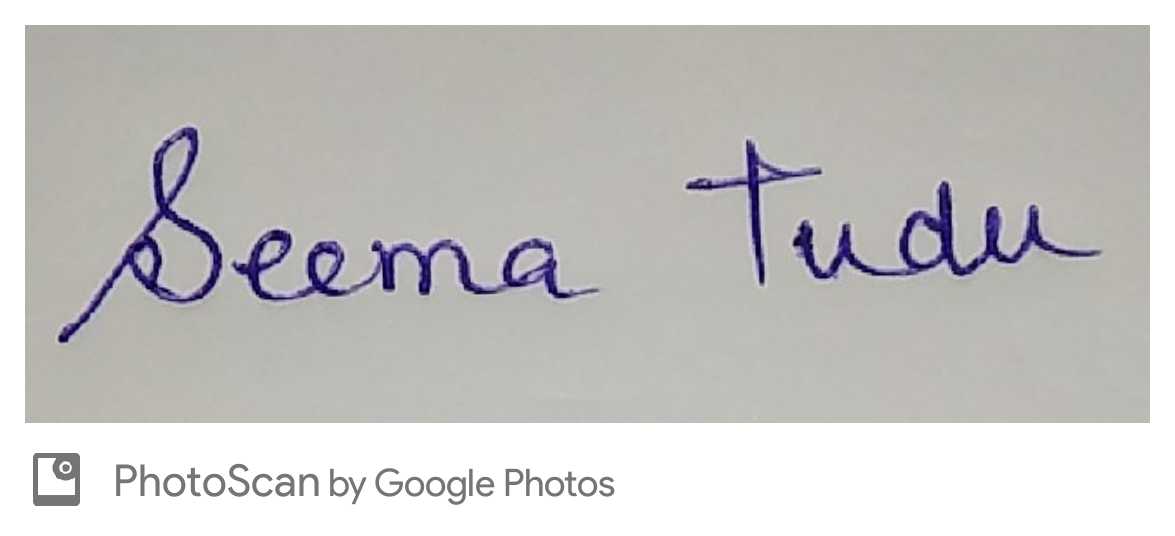 Seema Tudu
PhotoScan by Google Photos